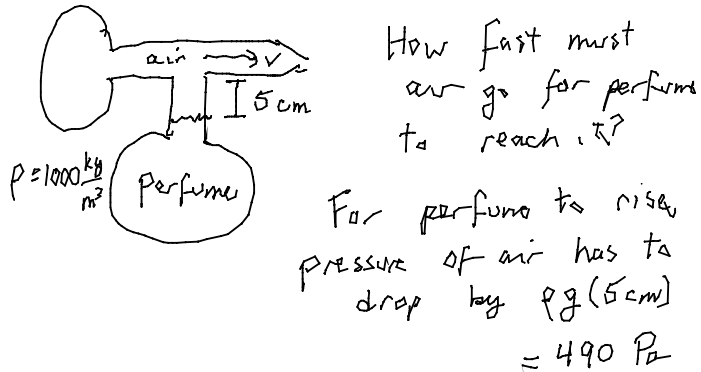 air → v
5 cm
ρ = 1000 kg/m³
Perfume
How fast must
air go for perfume
to reach it?
For perfume to rise,
pressure of air has to
drop by ρg(5cm)
= 490 Pa